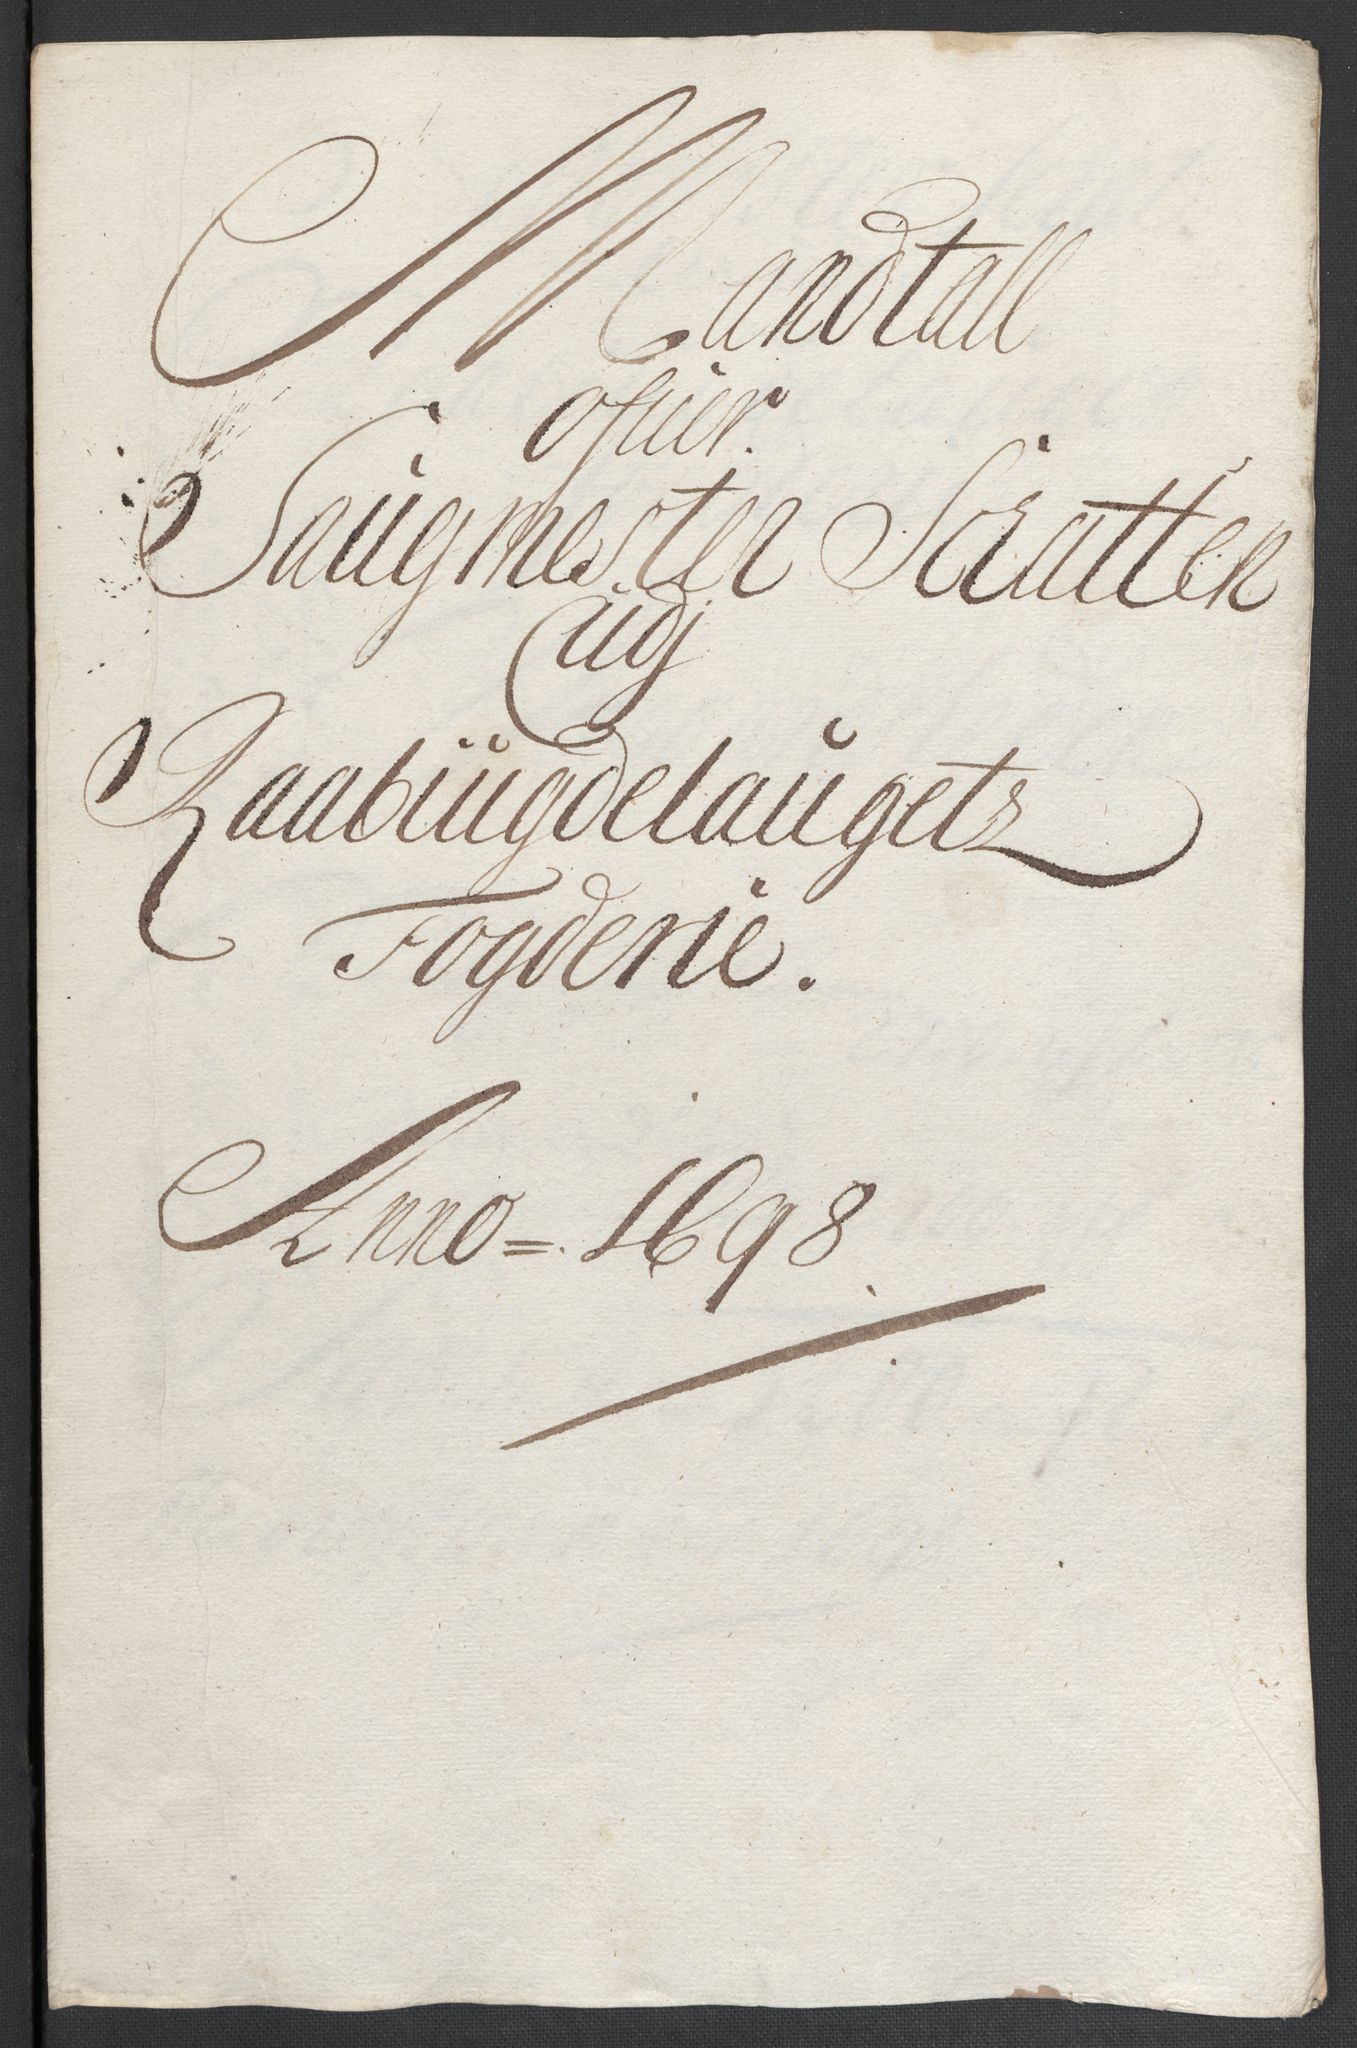 Mandtall
ofuer
Saugmester Schatten
udj
Raabÿugdelaugets
Fogderie.
Anno =. 1698.